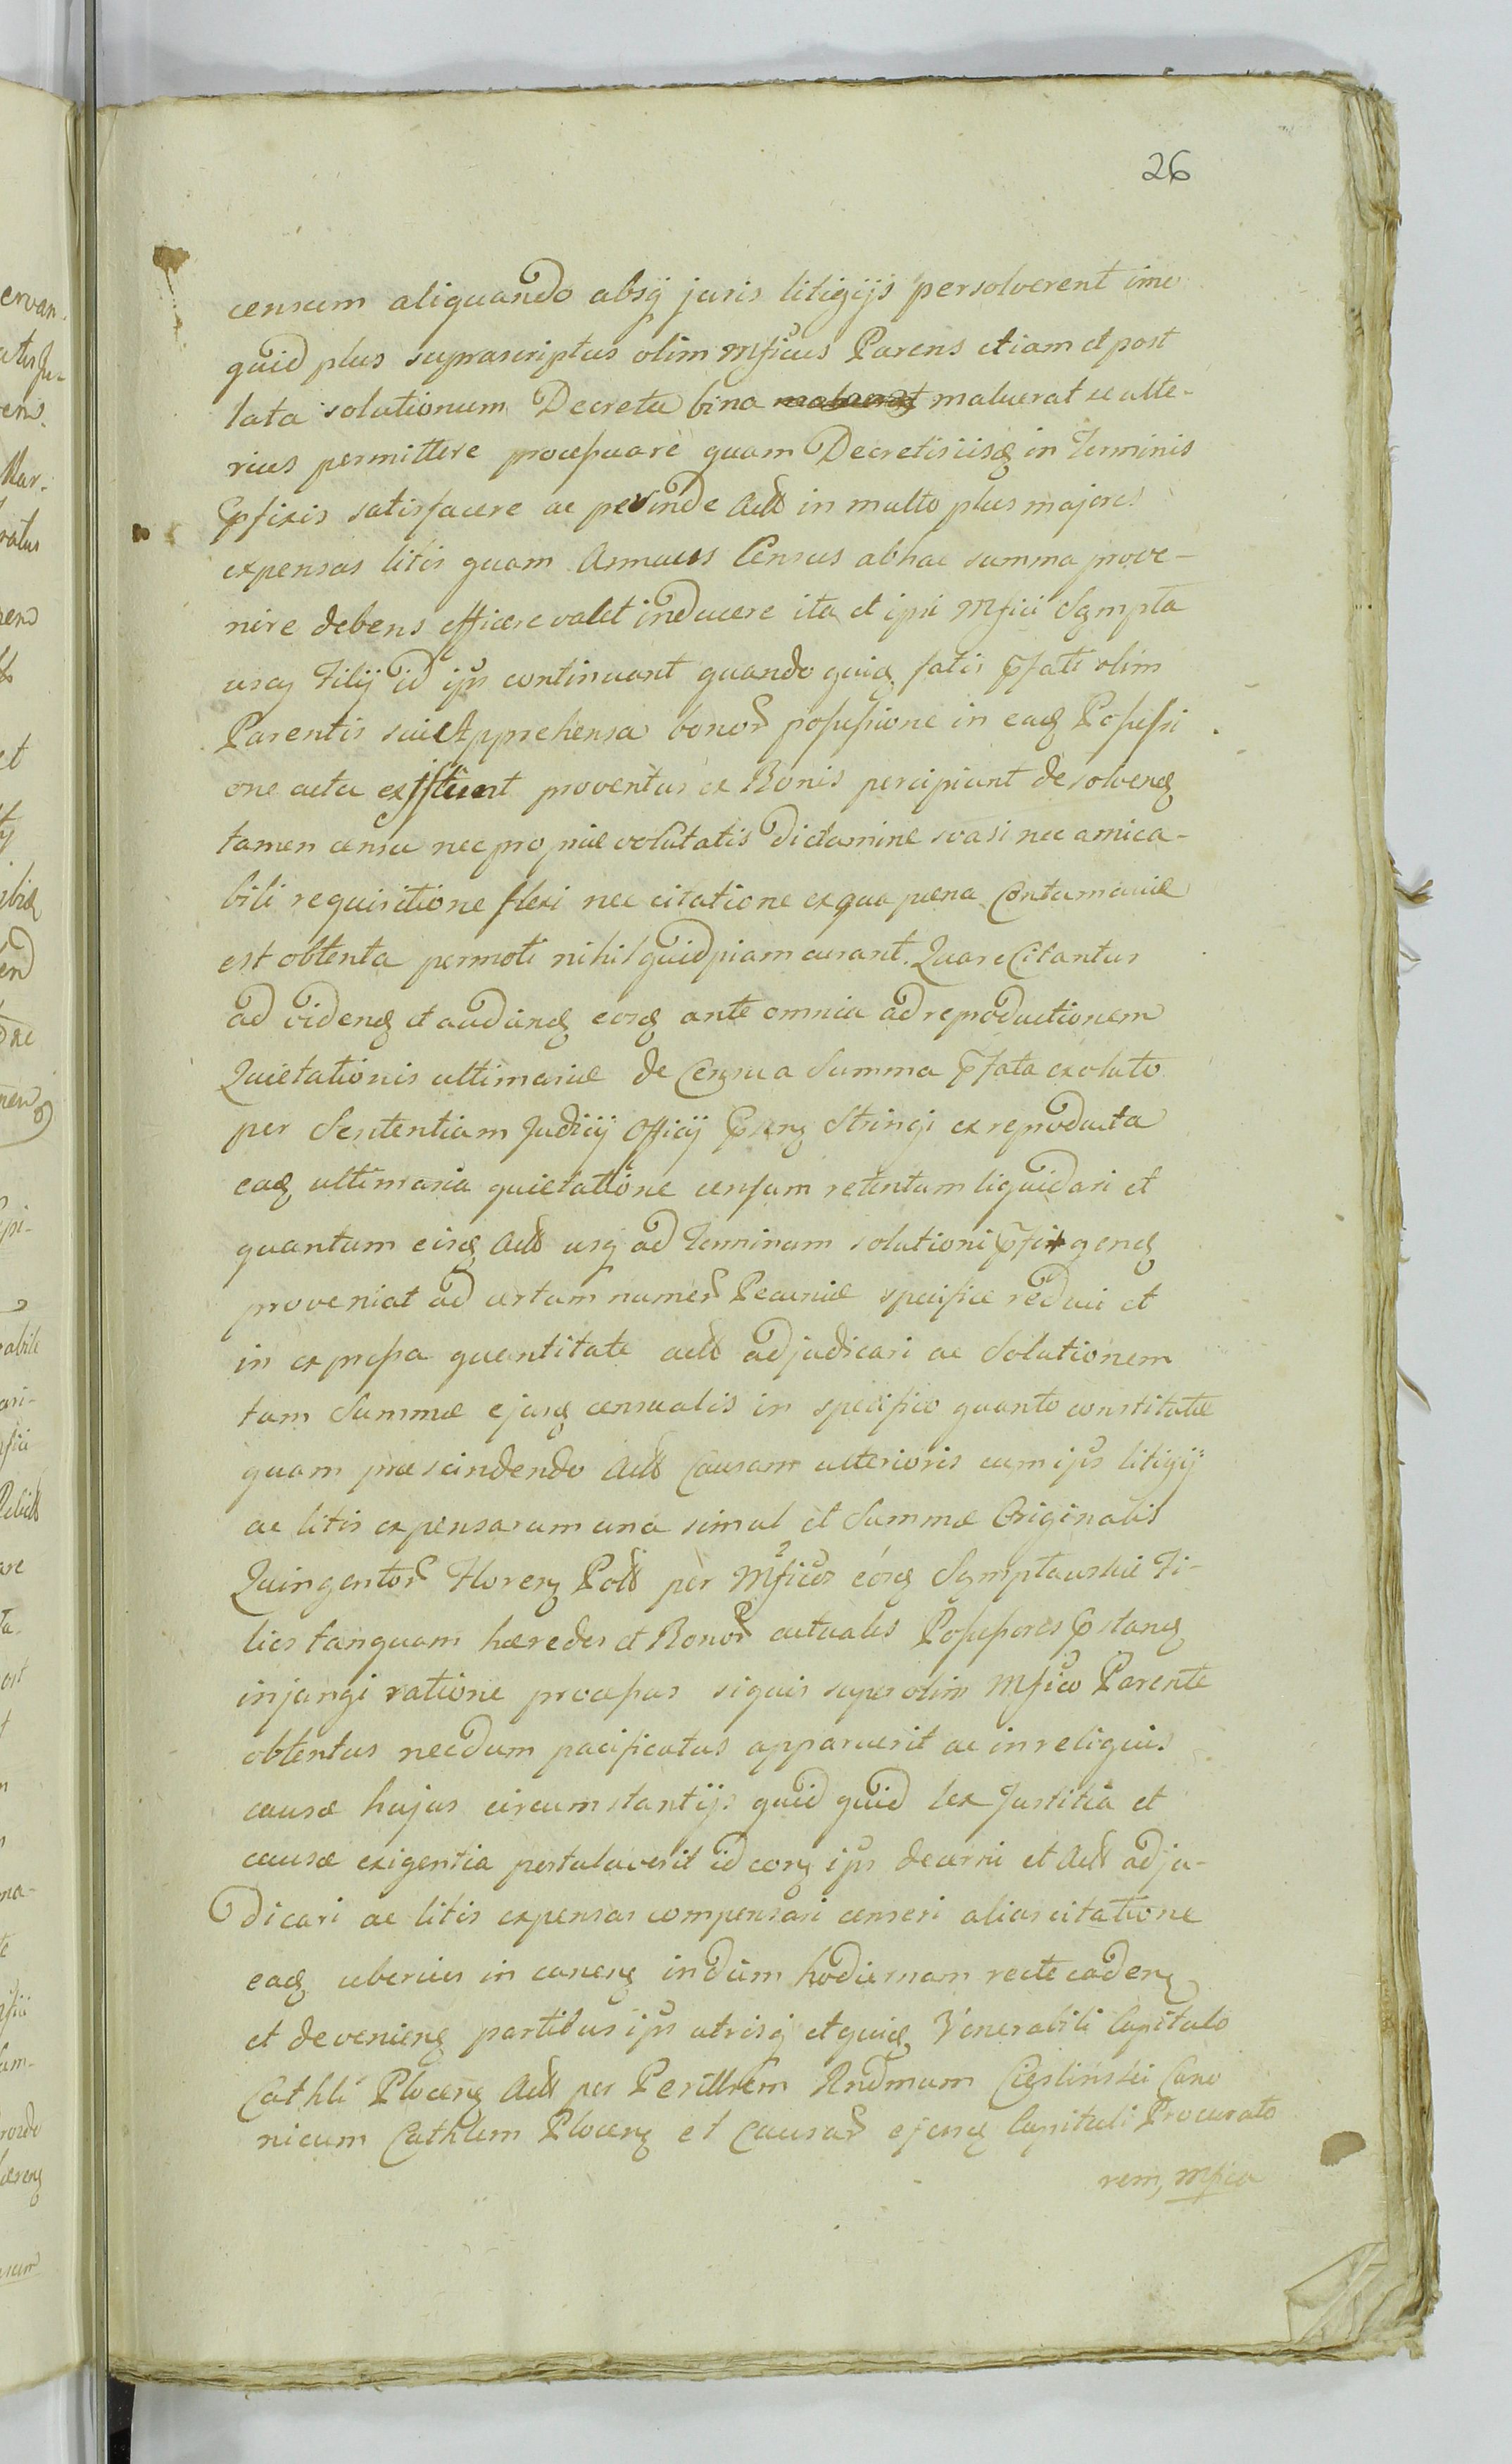 26
censum aliquando absq juris litigijs persolverent imo
quid plus suprascriptus olim Mficus Parens etiam et post
lata solutionum Decreta bina maluerat se ulte-
rius permittere processuare quam Decretis iisd in Terminis
pfixis satisfacere ac perinde Actt in multo plus majores
expensas litis quam Annuus Census ab hac summa prove-
nire debens efficere valet inducere ita et ipsi Mfici Sympta
uscy Filij id ips continuant quando quid fatis pfati olim
Parentis sui Apprehensa bonor possessione in ead Possessi
one acta existunt proventus ex Bonis percipiunt de solvend
tamen censu nec propriæ volutatis Dictamine svasi nec amica-
bili requisitione flexi nec citatione ex qua pæna Contumaciæ
est obtenta permoti nihil quidpiam curant. Quare Citantur
ad vidend et audiend eosd ante omnia ad reproductionem
Quietationis ultimariæ de Censu a Summa pfata exoluto
per Sententiam Judicij Officij pseng Stringi ex reproducta
ead ultimaria quietatione censum retentum liquidari et
quantum eisd Actt usq ad Terminum solutioni pfigend
proveniat ad certum numer Pecuniæ specifice reduci et
in expressa quantitate actt adjudicari ac Solutionem
tam Summæ ejusd censualis in specifico quanto constitutæ
quam præscindendo Actt Causam ulterioris cum ips litigij
ac litis expensarum una simul et Summæ Originalis
Quingentor Floreng Poll per Mficos eosd Symptauskie Fi-
lios tanquam hæredes et Bonor actuales Possessores pstand
injungi ratione processus siquis super olim Mfico Parente
obtentus necdum pacificatus apparuerit ac in reliquis
causæ hujus circumstantijs quid quid lex Justitia et
causæ exigentia postulaverit id cong ips decerni et Actt adju-
dicari ac litis expensas compensari censeri alias citatione
ead uberius in caneng in diem hodiernam recte cadeng
et devenieng partibus ips utrisq et quid Venerabili Capitulo
Cathli Ploceng Actt per Perillrem Rndmum Cieslinski Cano
nicum Cathlem Ploceng et Causar ejusd Capituli Procurato
rem, Mfica